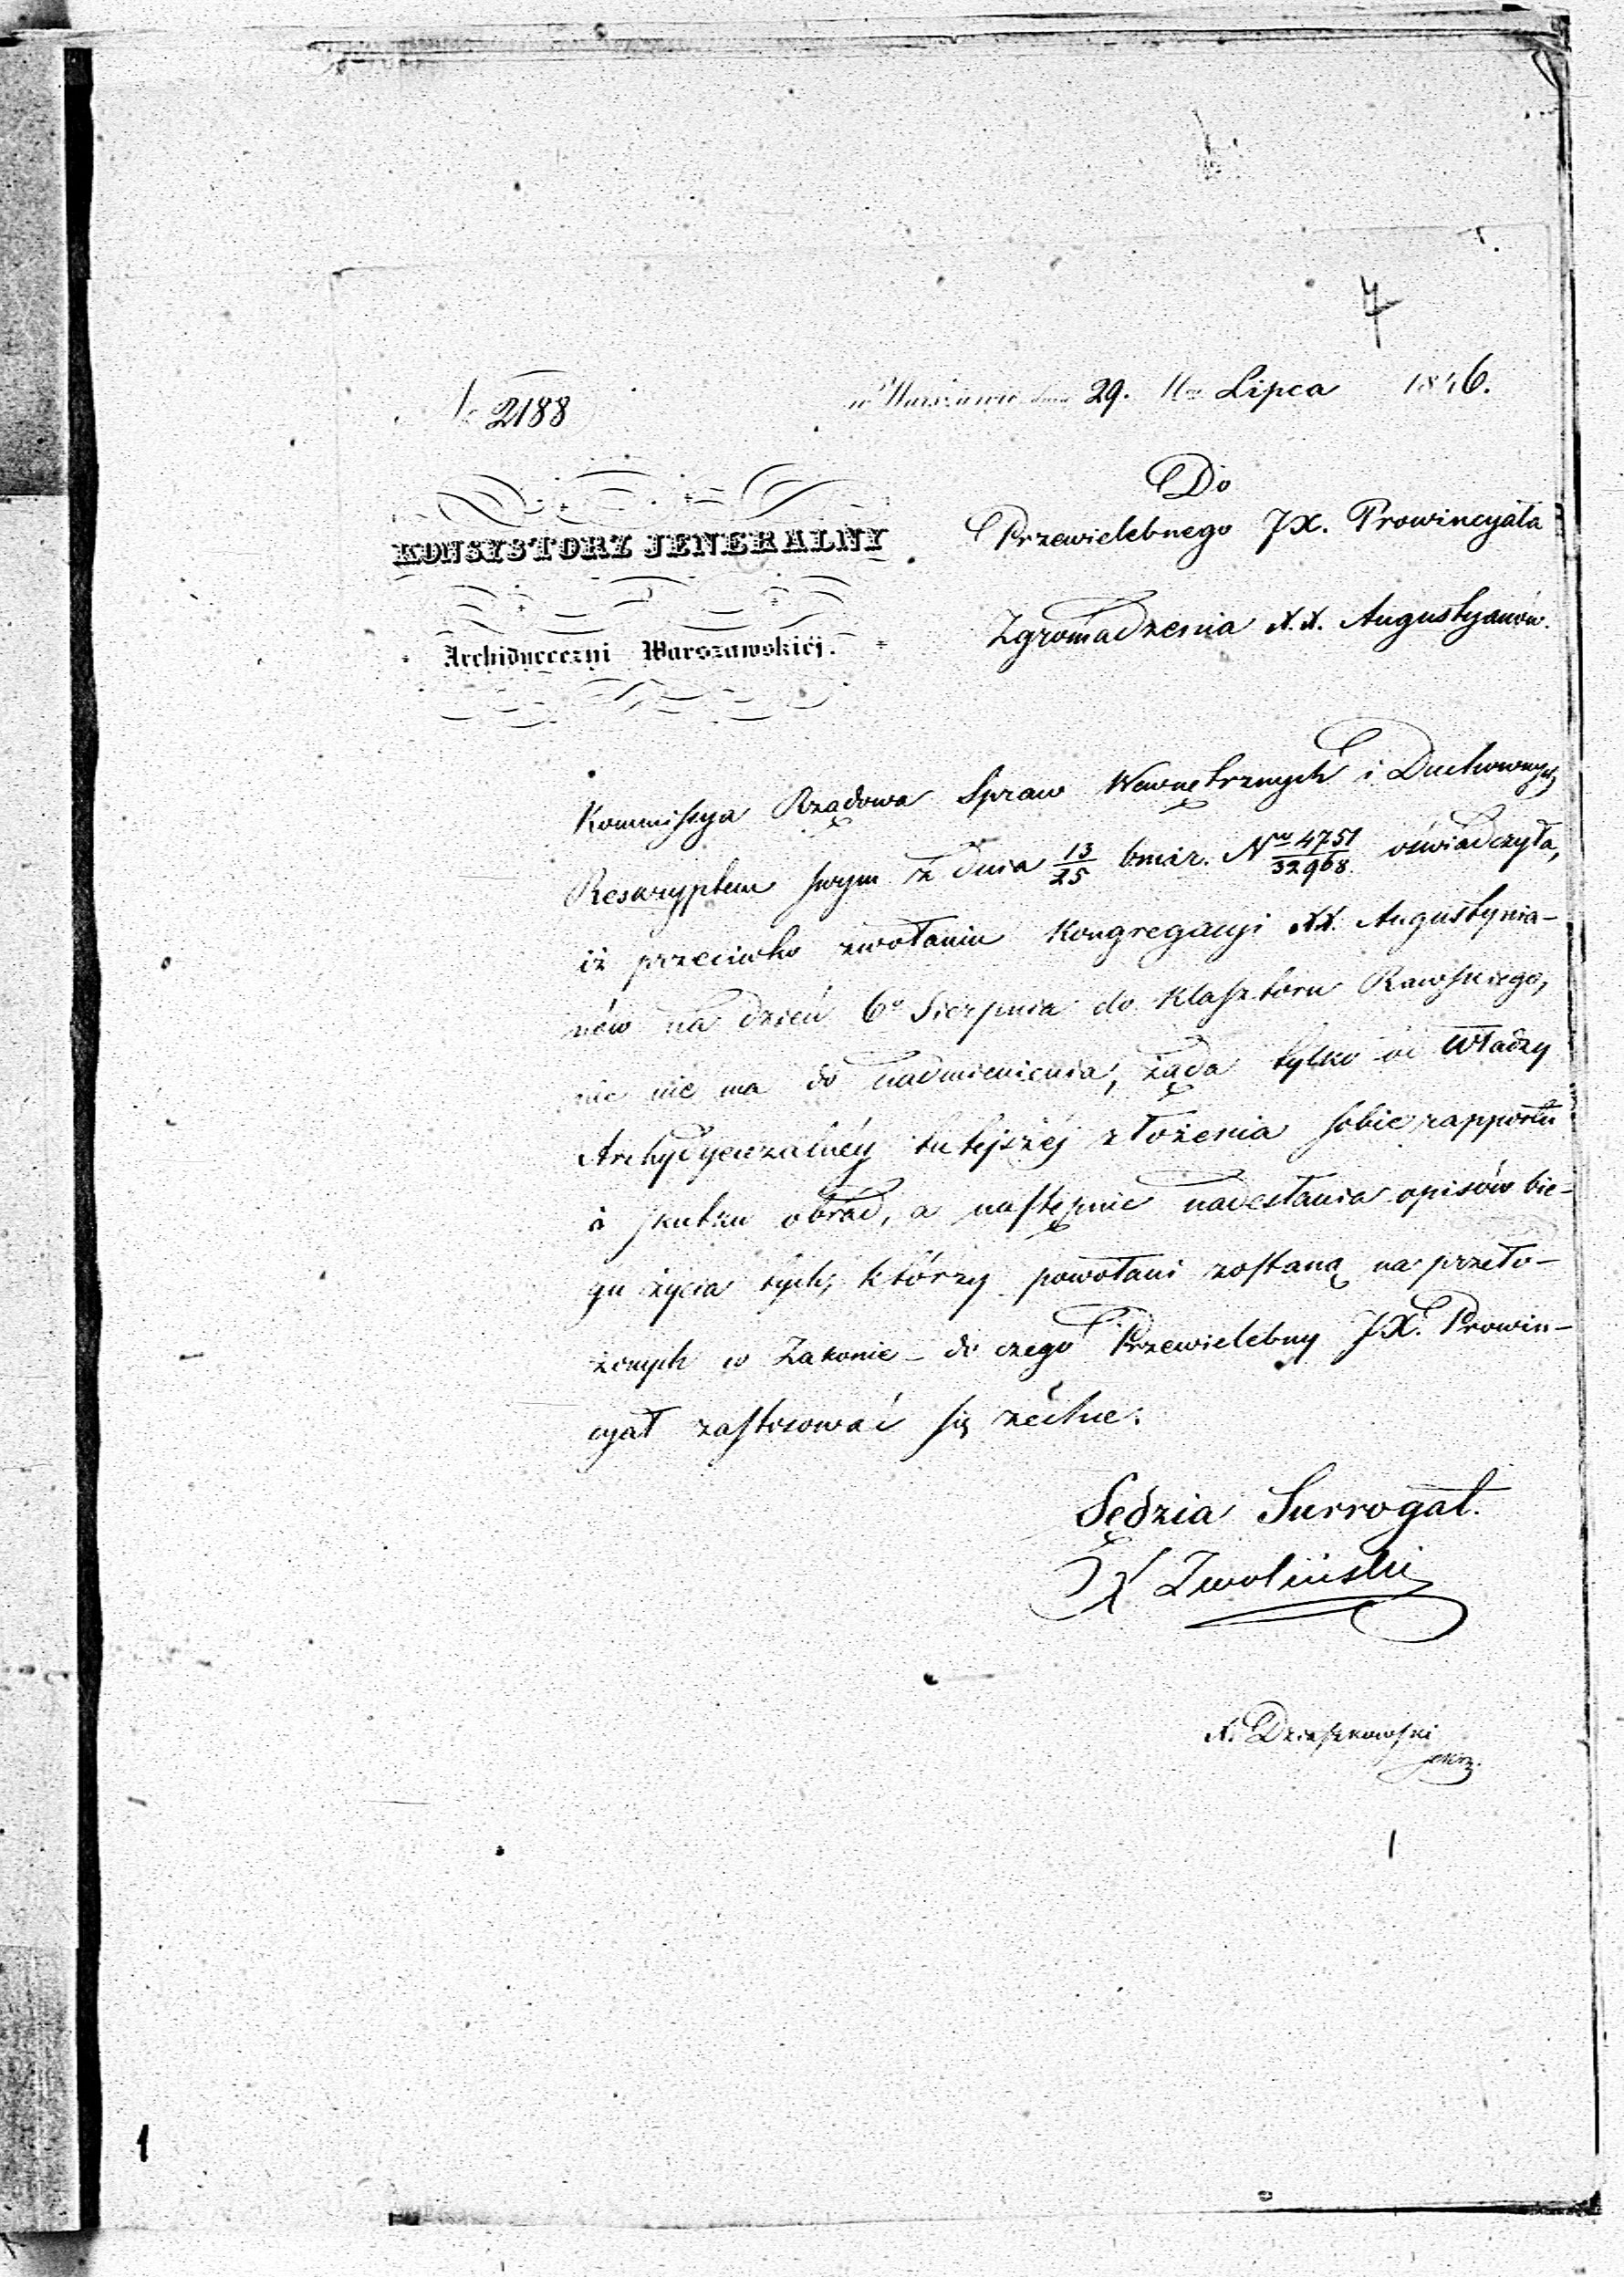 4
No 2188
w Warszawie dnia 29. Mca Lipca 1846.
KONSYSTORZ JENERALNY
Archidyecezyi Warszawskiéj.
Do
Przewielebnego JX. Prowincyała
Zgromadzenia X.X. Augustyanów.
Kommissya Rządowa Spraw Wewnętrznych i Duchownych
Reskryptem swym z dnia 13/25 bmir. Nro 4751/32968 oświadczyła,
iż przeciwko zwołaniu Kongregacyi XX. Augustynia-
nów na dzień 6o Sierpnia do Klasztoru Rawskiego,
nic nie ma do nadmienienia, żąda tylko od Władzy
Archydyecezalnéy tutejszéj złożenia sobie rapportu
o skutku obrad, a następnie nadesłania opisów bie-
gu życia tych, którzy powołani zostaną na przeło-
żonych w Zakonie – do czego Przewielebny JX. Prowin-
cyał zastosować się zechce.
Sędzia Surrogat.
X Zwoliński
X. Dziaszkowski
sekrz.
1